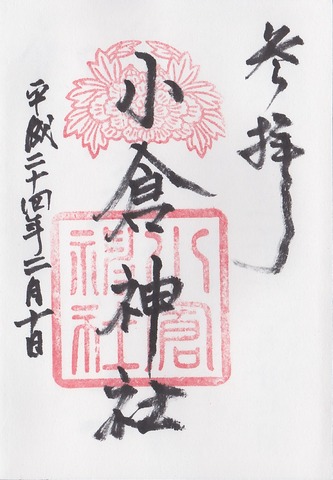 参拝
小倉神社
小倉
神社
平成二十四年二月十日